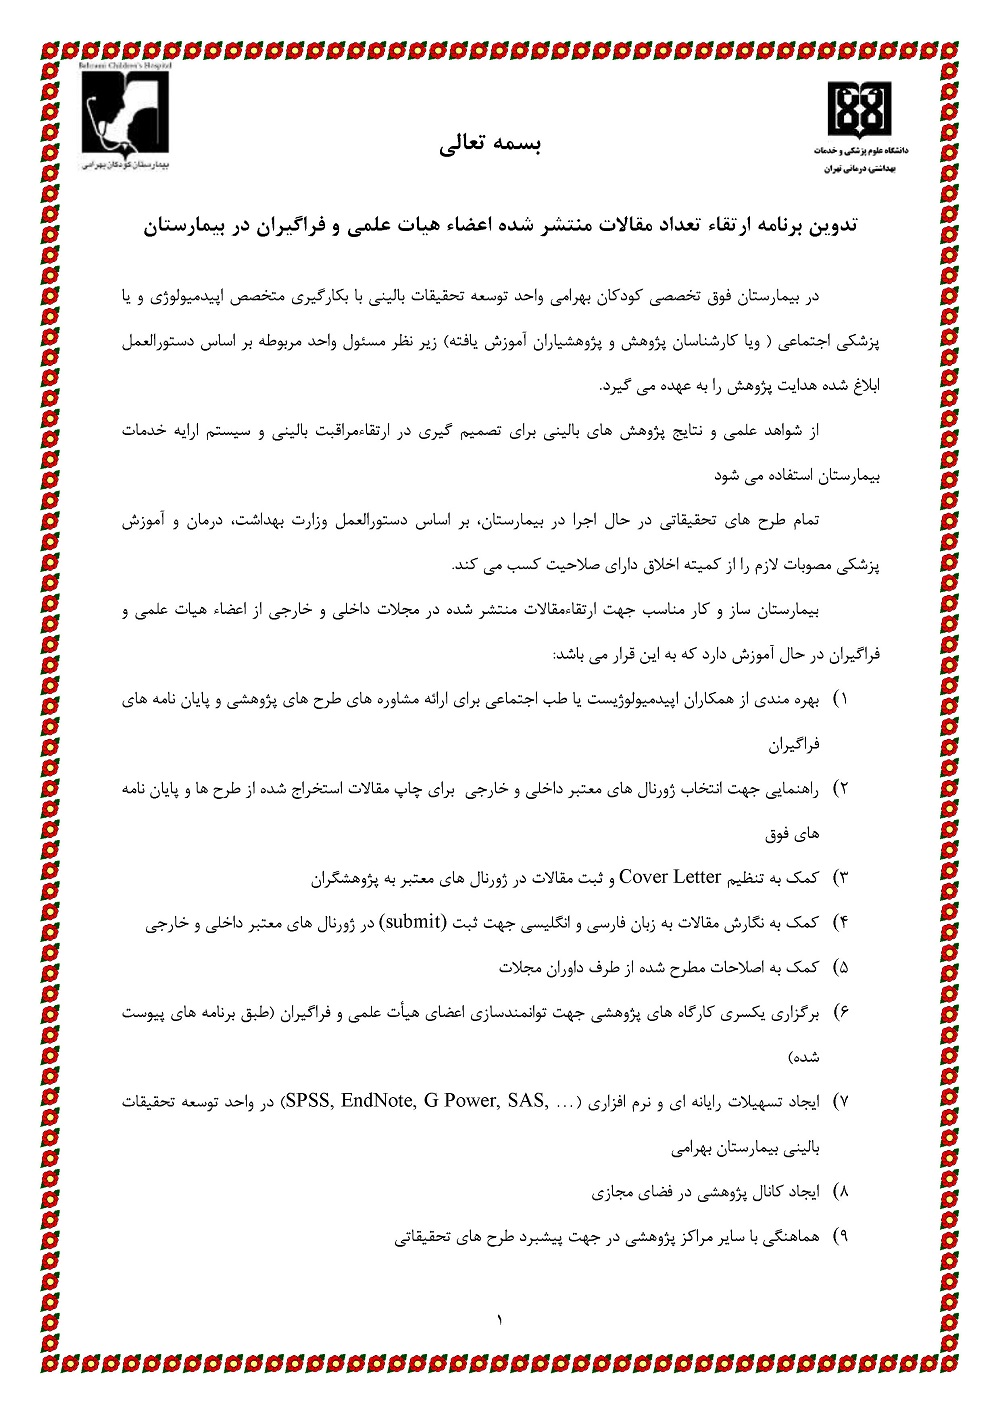 Bahrami Children's Hospital
بیمارستان کودکان بهرامی
دانشگاه علوم پزشکی و خدمات
بهداشتی درمانی تهران
بسمه تعالی
تدوین برنامه ارتقاء تعداد مقالات منتشر شده اعضاء هیات علمی و فراگیران در بیمارستان
در بیمارستان فوق تخصصی کودکان بهرامی واحد توسعه تحقیقات بالینی با بکارگیری متخصص اپیدمیولوژی و یا
پزشکی اجتماعی ( ویا کارشناسان پژوهش و پژوهشیاران آموزش یافته) زیر نظر مسئول واحد مربوطه بر اساس دستورالعمل
ابلاغ شده هدایت پژوهش را به عهده می گیرد.
از شواهد علمی و نتایج پژوهش های بالینی برای تصمیم گیری در ارتقاءمراقبت بالینی و سیستم ارایه خدمات
بیمارستان استفاده می شود
تمام طرح های تحقیقاتی در حال اجرا در بیمارستان، بر اساس دستورالعمل وزارت بهداشت، درمان و آموزش
پزشکی مصوبات لازم را از کمیته اخلاق دارای صلاحیت کسب می کند.
بیمارستان ساز و کار مناسب جهت ارتقاءمقالات منتشر شده در مجلات داخلی و خارجی از اعضاء هیات علمی و
فراگیران در حال آموزش دارد که به این قرار می باشد:
۱) بهره مندی از همکاران اپیدمیولوژیست یا طب اجتماعی برای ارائه مشاوره های طرح های پژوهشی و پایان نامه های
فراگیران
۲) راهنمایی جهت انتخاب ژورنال های معتبر داخلی و خارجی برای چاپ مقالات استخراج شده از طرح ها و پایان نامه
های فوق
۳) کمک به تنظیم Cover Letter و ثبت مقالات در ژورنال های معتبر به پژوهشگران
۴) کمک به نگارش مقالات به زبان فارسی و انگلیسی جهت ثبت (submit) در ژورنال های معتبر داخلی و خارجی
۵) کمک به اصلاحات مطرح شده از طرف داوران مجلات
۶) برگزاری یکسری کارگاه های پژوهشی جهت توانمندسازی اعضای هیأت علمی و فراگیران (طبق برنامه های پیوست
شده)
۷) ایجاد تسهیلات رایانه ای و نرم افزاری (SPSS, EndNote, G Power, SAS, …) در واحد توسعه تحقیقات
بالینی بیمارستان بهرامی
۸) ایجاد کانال پژوهشی در فضای مجازی
۹) هماهنگی با سایر مراکز پژوهشی در جهت پیشبرد طرح های تحقیقاتی
۱